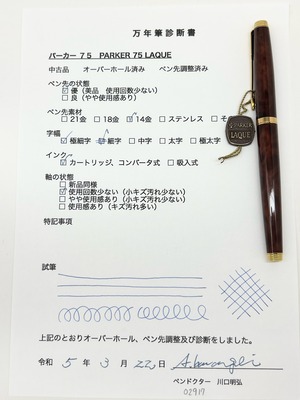 万年筆診断書
パーカー75 PARKER 75 LAQUE
中古品 オーバーホール済み ペン先調整済み
ペン先の状態
☑ 優(美品 使用回数少ない)
☐ 良(やや使用感あり)
ペン先素材
☐ 21金 ☐ 18金 ☑ 14金 ☐ ステンレス ☐ そ
字幅
☑ 極細字 ☐ 細字 ☐ 中字 ☐ 太字 ☐ 極太字
インク
☑ カートリッジ、コンバータ式 ☐ 吸入式
軸の状態
☐ 新品同様
☑ 使用回数少ない(小キズ汚れ少ない)
☐ やや使用感あり(小キズ汚れ少ない)
☐ 使用感あり(キズ汚れ多い)
特記事項
PARKER
LAQUE
試筆
上記のとおりオーバーホール、ペン先調整及び診断をしました。
令和 5 年 3 月 22 日
ペンドクター 川口明弘
02917